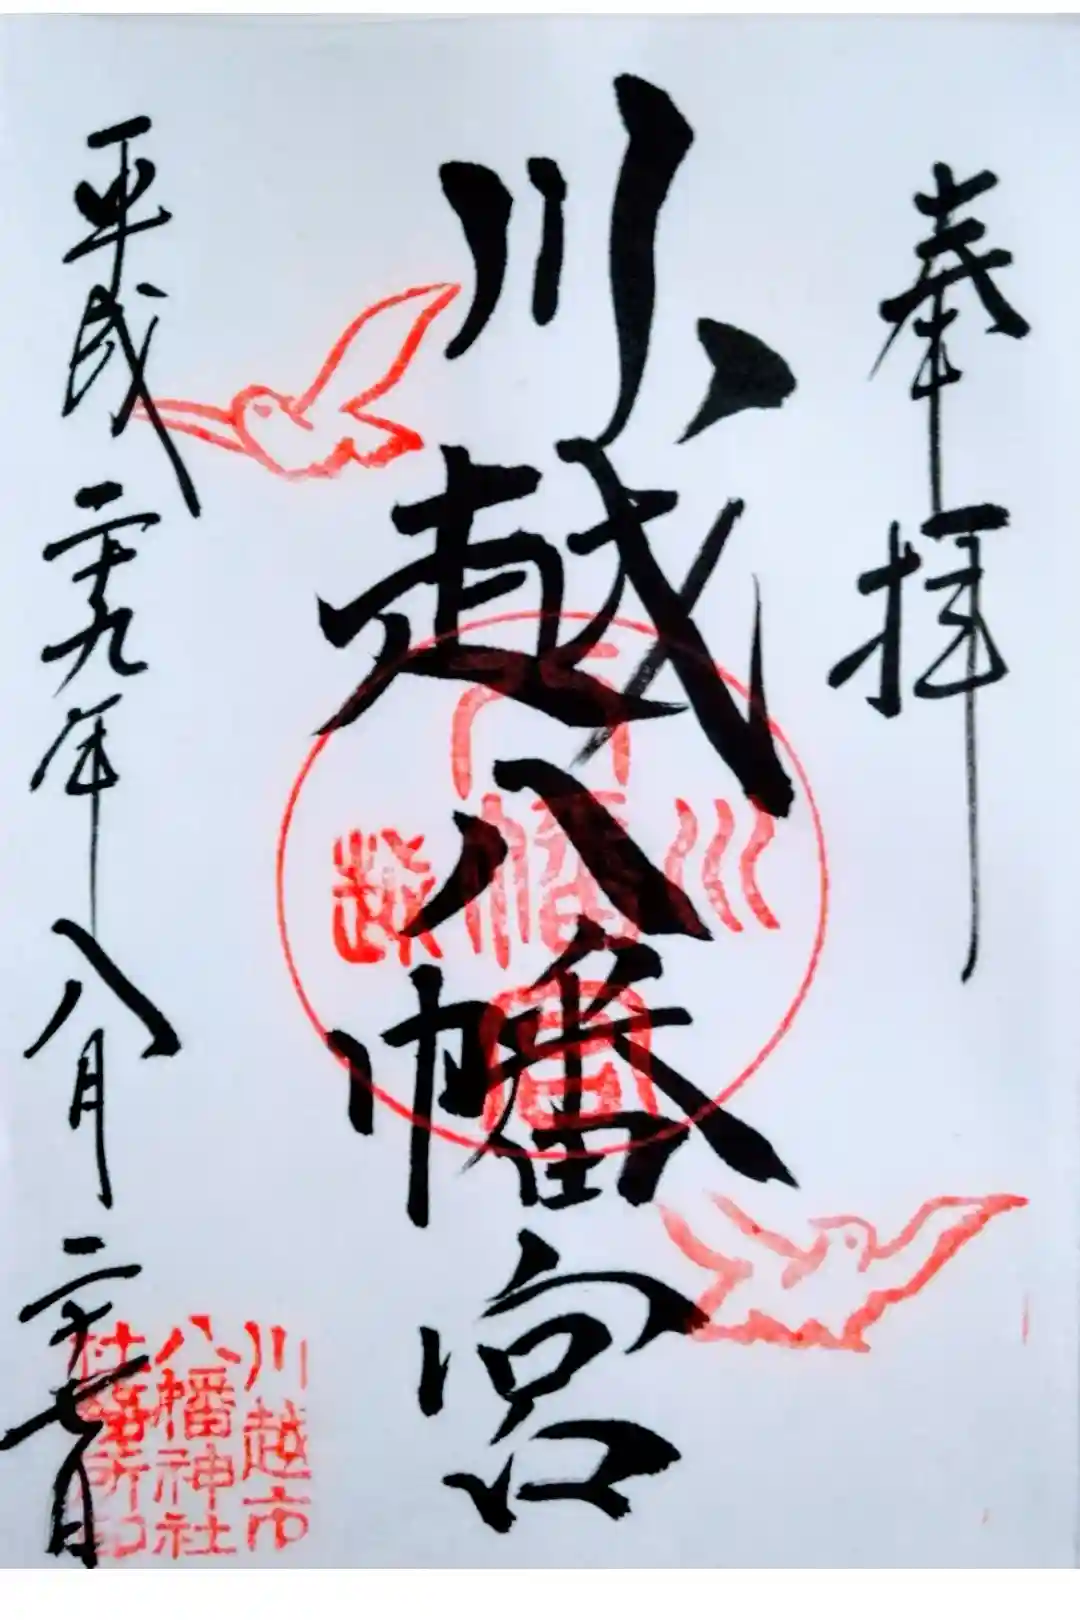 奉拝
川越八幡宮
平成二十九年八月二十七日
川越
八幡宮
川越市
八幡神社
社務所印